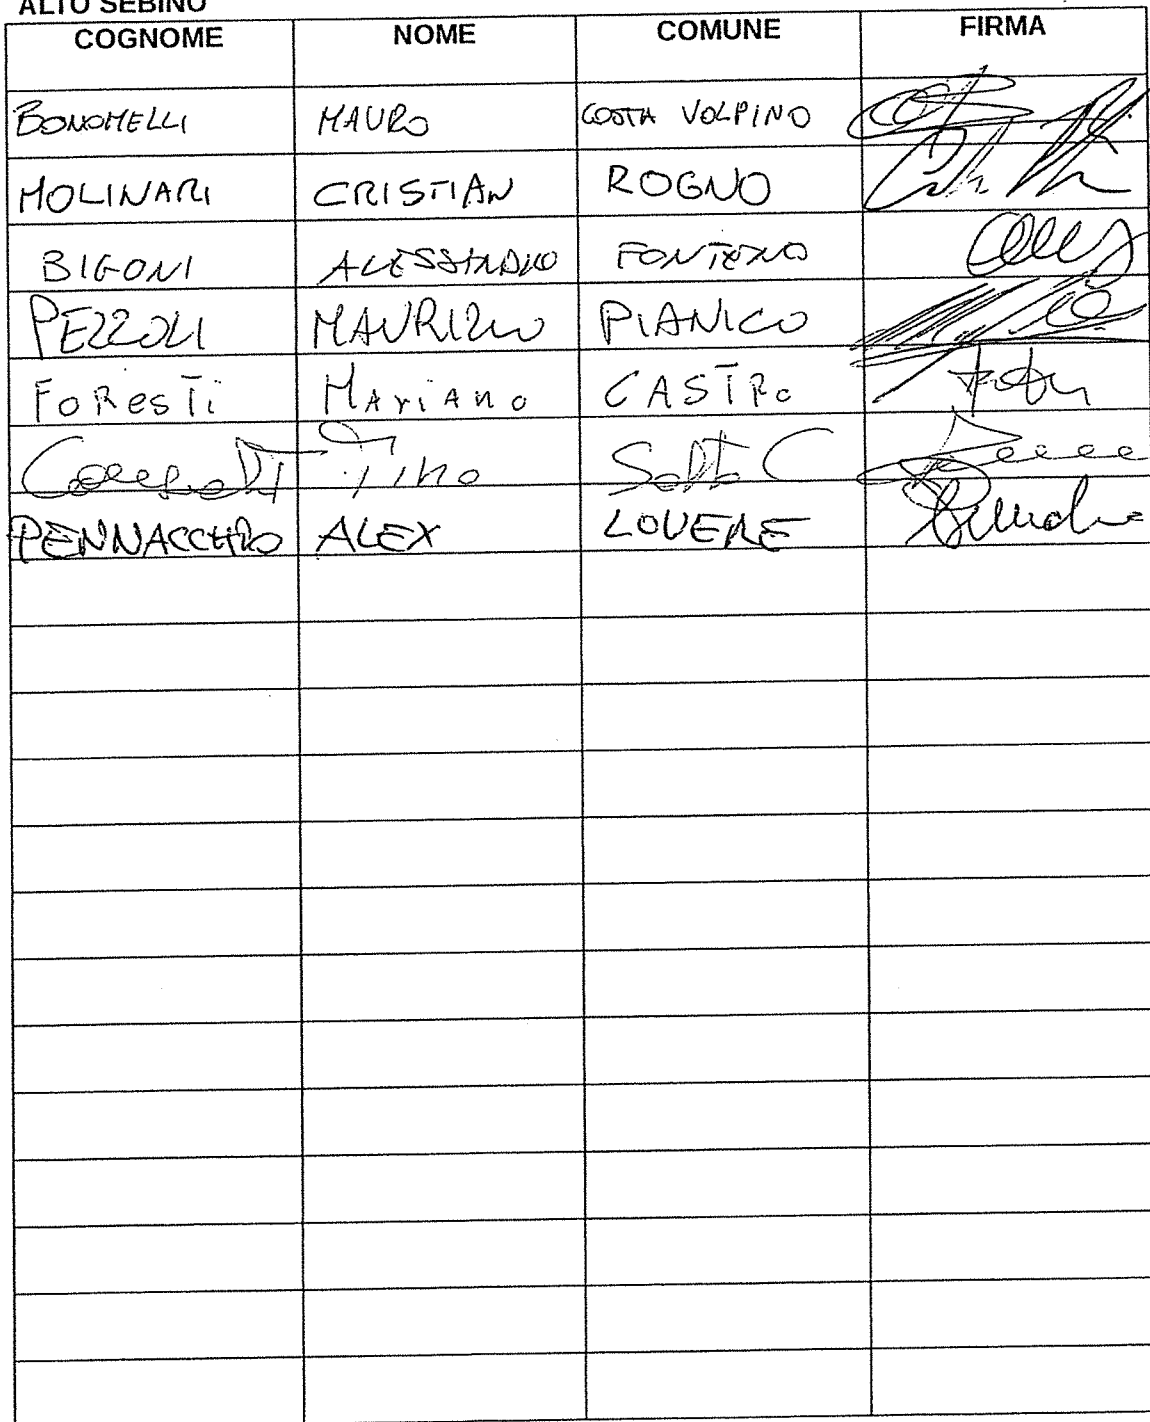 ALTO SEBINO
COGNOME NOME COMUNE FIRMA
BONOMELLI MAURO COSTA VOLPINO
MOLINARI CRISTIAN ROGNO
BIGONI ALESSANDRO FONTENO
PEZZOLI MAURIZIO PIANICO
FoResTi MAriANo CASTRo
Tino Solto C
PENNACCHIO ALEX LOVERE